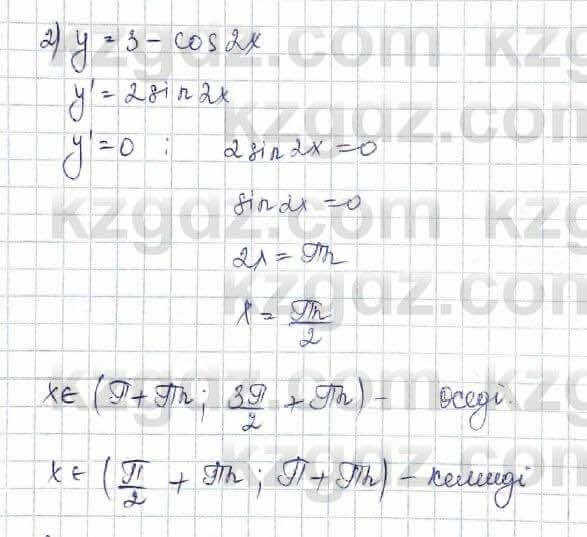 2) y = 3 - cos 2x
y' = 2 sin 2x
y' = 0 : 2 sin 2x = 0
sin 2x = 0
2x = πn
x = πn/2
x ∈ (π + πn; 3π/2 + πn) - өседі.
x ∈ (π/2 + πn; π + πn) - кемиді
kzgdz.com kzgdz.com